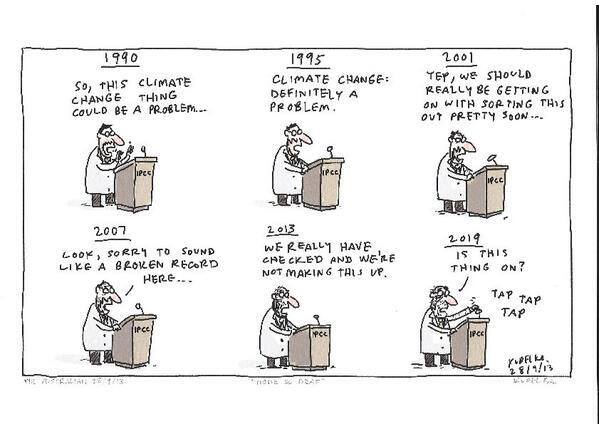 1990
SO, THIS CLIMATE
CHANGE THING
COULD BE A PROBLEM...
IPCC
1995
CLIMATE CHANGE:
DEFINITELY A
PROBLEM.
IPCC
2001
YEP, WE SHOULD
REALLY BE GETTING
ON WITH SORTING THIS
OUT PRETTY SOON...
IPCC
2007
LOOK, SORRY TO SOUND
LIKE A BROKEN RECORD
HERE...
IPCC
2013
WE REALLY HAVE
CHECKED AND WE'RE
NOT MAKING THIS UP.
IPCC
2019
IS THIS
THING ON?
TAP TAP
TAP
IPCC
KUDELKA
28/9/13
AUSTRALIAN 28/9/13